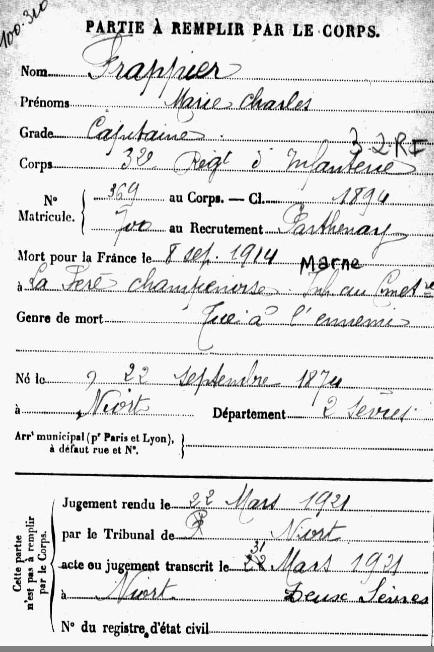 100.310
PARTIE À REMPLIR PAR LE CORPS.
Nom Frappier
Prénoms Marie Charles
Grade Capitaine. 32 RI
Corps 32e Régt d'Infanterie
N° Matricule. 369 au Corps. — Cl. 1894
700 au Recrutement Parthenay
Mort pour la France le 8 sep. 1914 MARNE
à La Fère champenoise. Inh. au Cimetre
Genre de mort Tué à l'ennemi
Né le 22 septembre 1874
à Niort Département 2 Sèvres
Arrt municipal (pr Paris et Lyon),
à défaut rue et N°.
Cette partie n'est pas à remplir par le Corps.
Jugement rendu le 22 Mars 1921
par le Tribunal de Niort
acte ou jugement transcrit le 31 Mars 1921
à Niort Deux Sèvres
N° du registre d'état civil